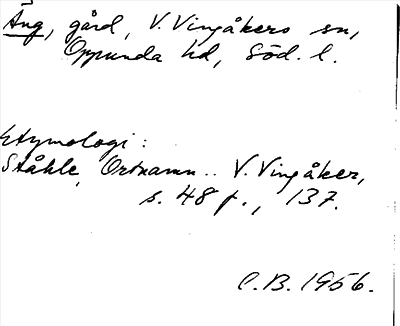 Äng, gård, V. Vingåkers sn,
Oppunda hd, Söd. l.
Etymologi:
Ståhle, Ortnamn.. V. Vingåker,
s. 48 f., 137.
C.B. 1956.